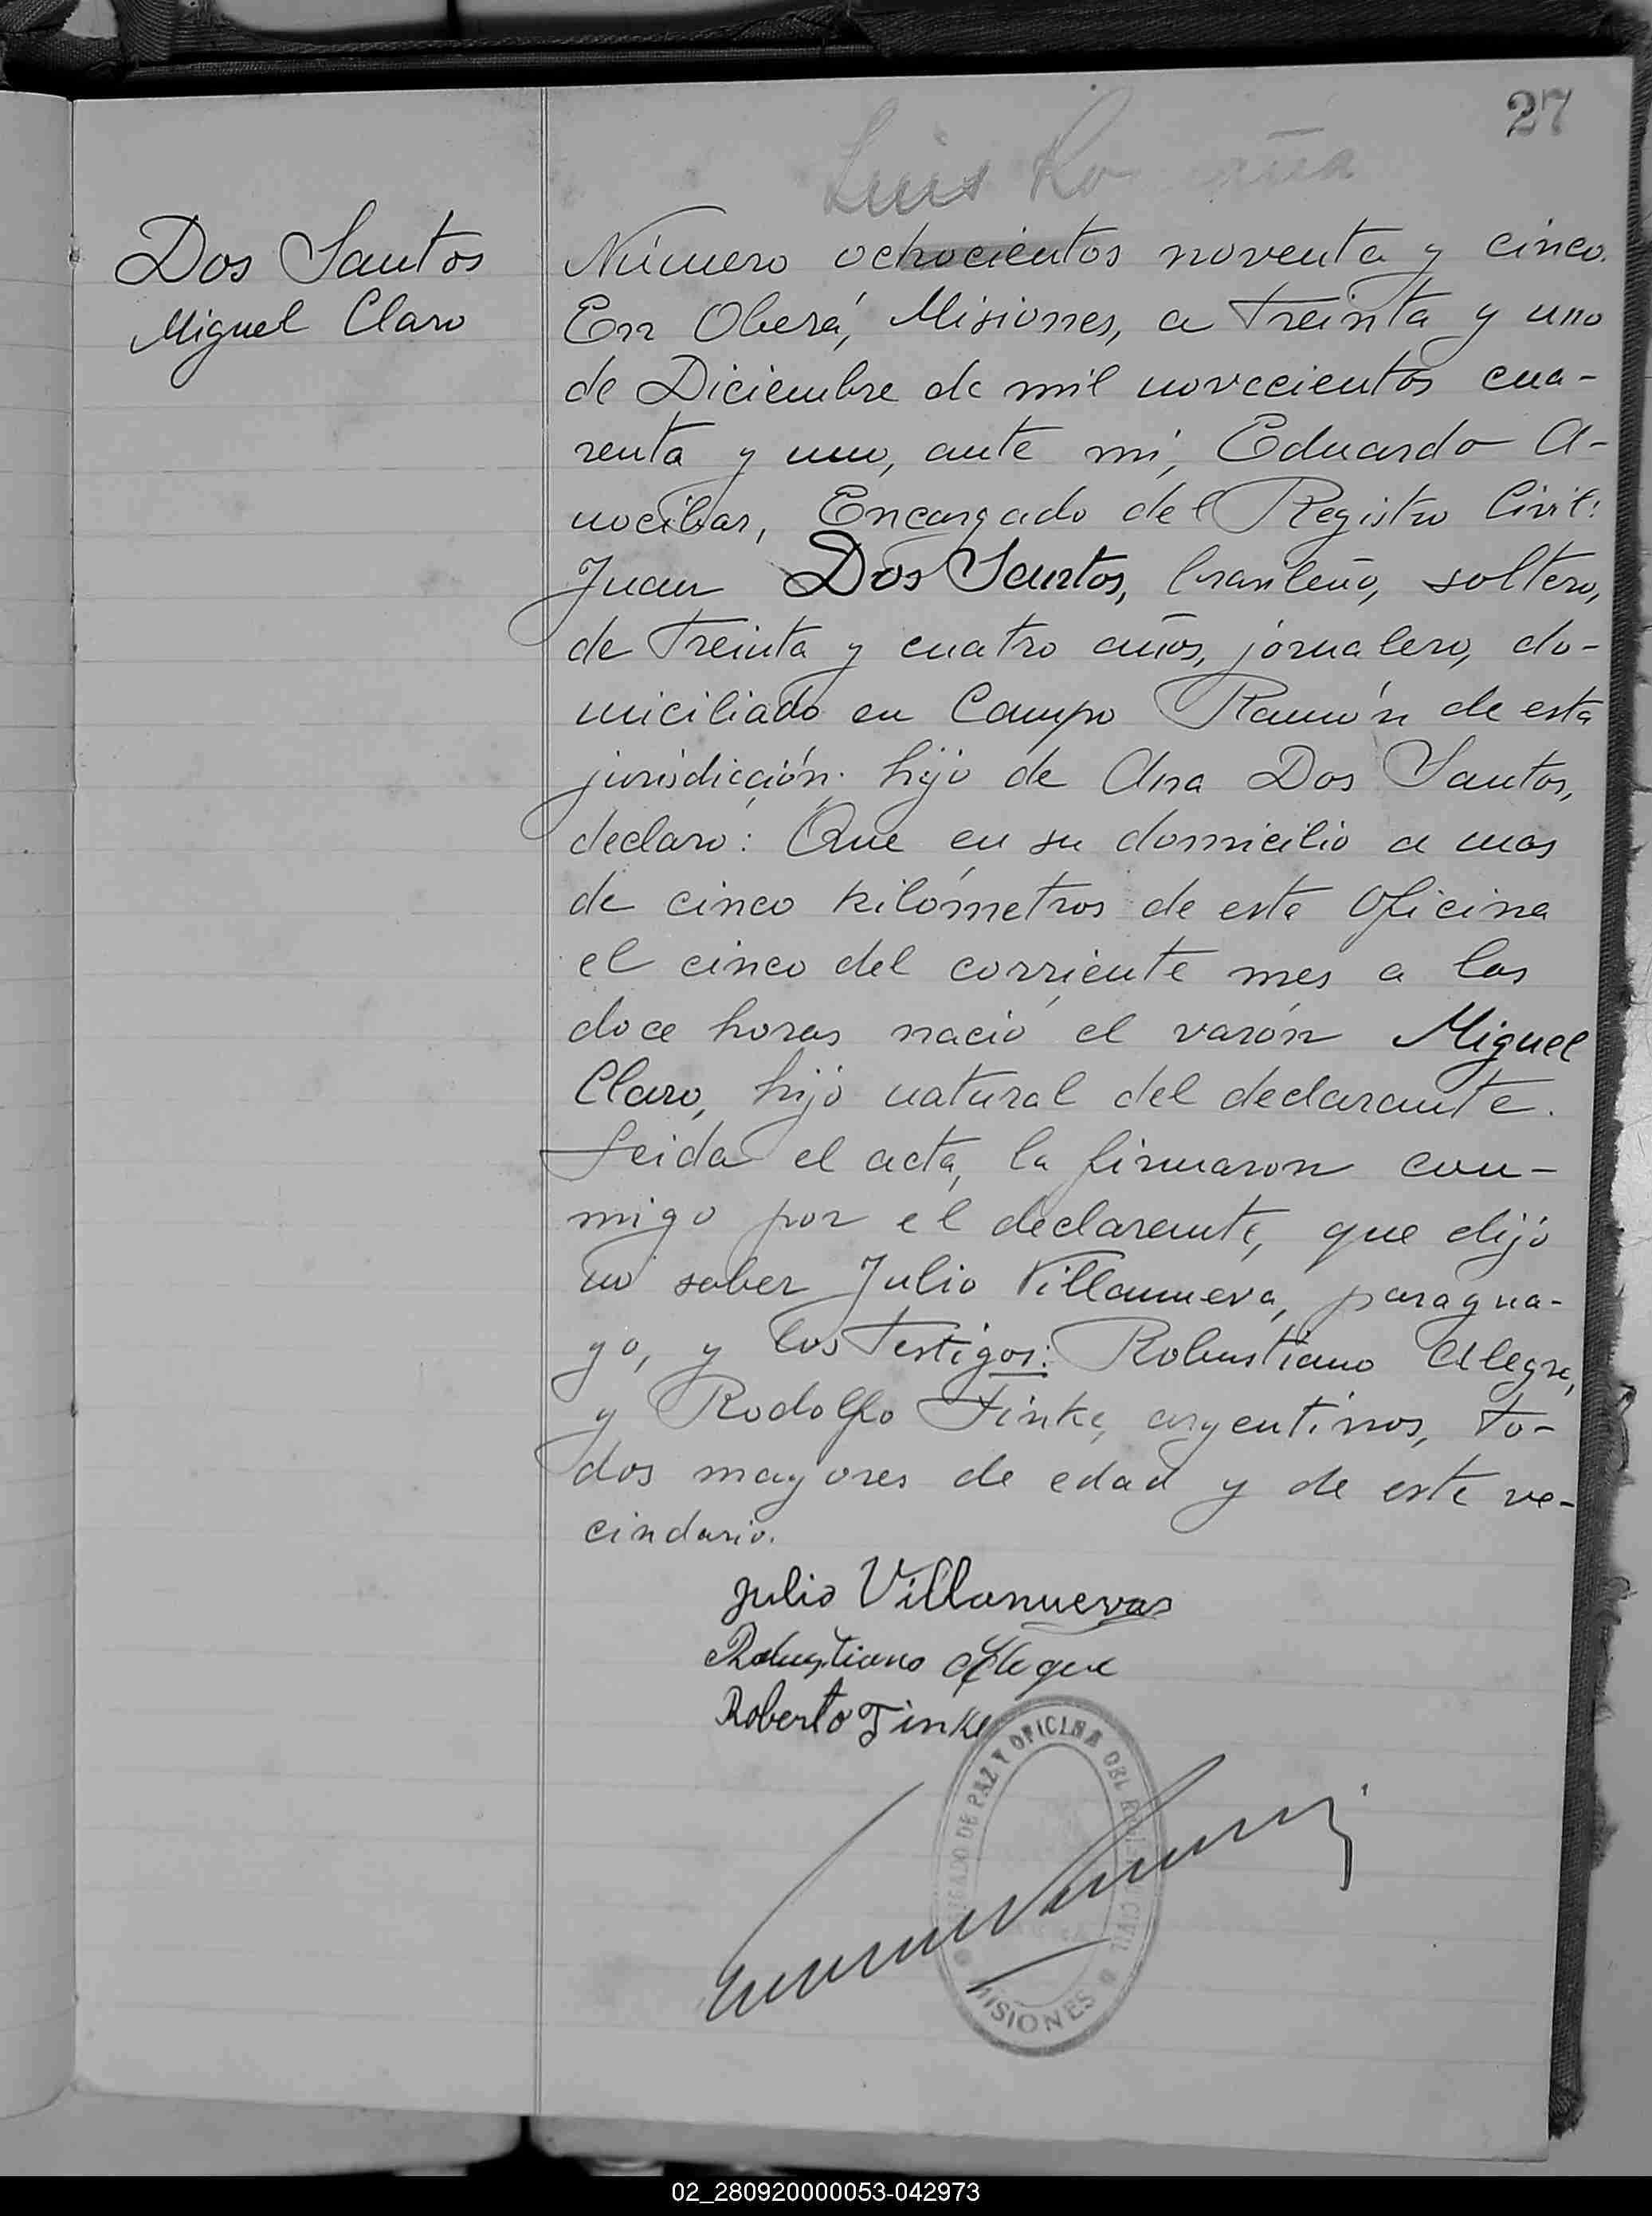 27
Luis
Dos Santos
Miguel Claro
Número ochocientos noventa y cinco.
En Oberá, Misiones, a treinta y uno
de Diciembre de mil novecientos cua-
renta y uno, ante mí, Eduardo A-
nocibar, Encargado del Registro Civil:
Juan Dos Santos, brasileño, soltero,
de treinta y cuatro años, jornalero, do-
miciliado en Campo Ramón de esta
jurisdicción, hijo de Ana Dos Santos,
declaro: Que en su domicilio a mas
de cinco kilómetros de esta Oficina
el cinco del corriente mes a las
doce horas nació el varón Miguel
Claro, hijo natural del declarante.
Leida el acta, la firmaron con-
migo por el declarante, que dijo
no saber Julio Villanueva, paragua-
yo, y los testigos: Robustiano Alegre,
y Rodolfo Finke, argentinos, to-
dos mayores de edad y de este ve-
cindario.
Julio Villanueva
Robustiano Alegre
Roberto Finke
JUZGADO DE PAZ Y OFICINA DEL REGISTRO CIVIL
MISIONES
02_280920000053-042973